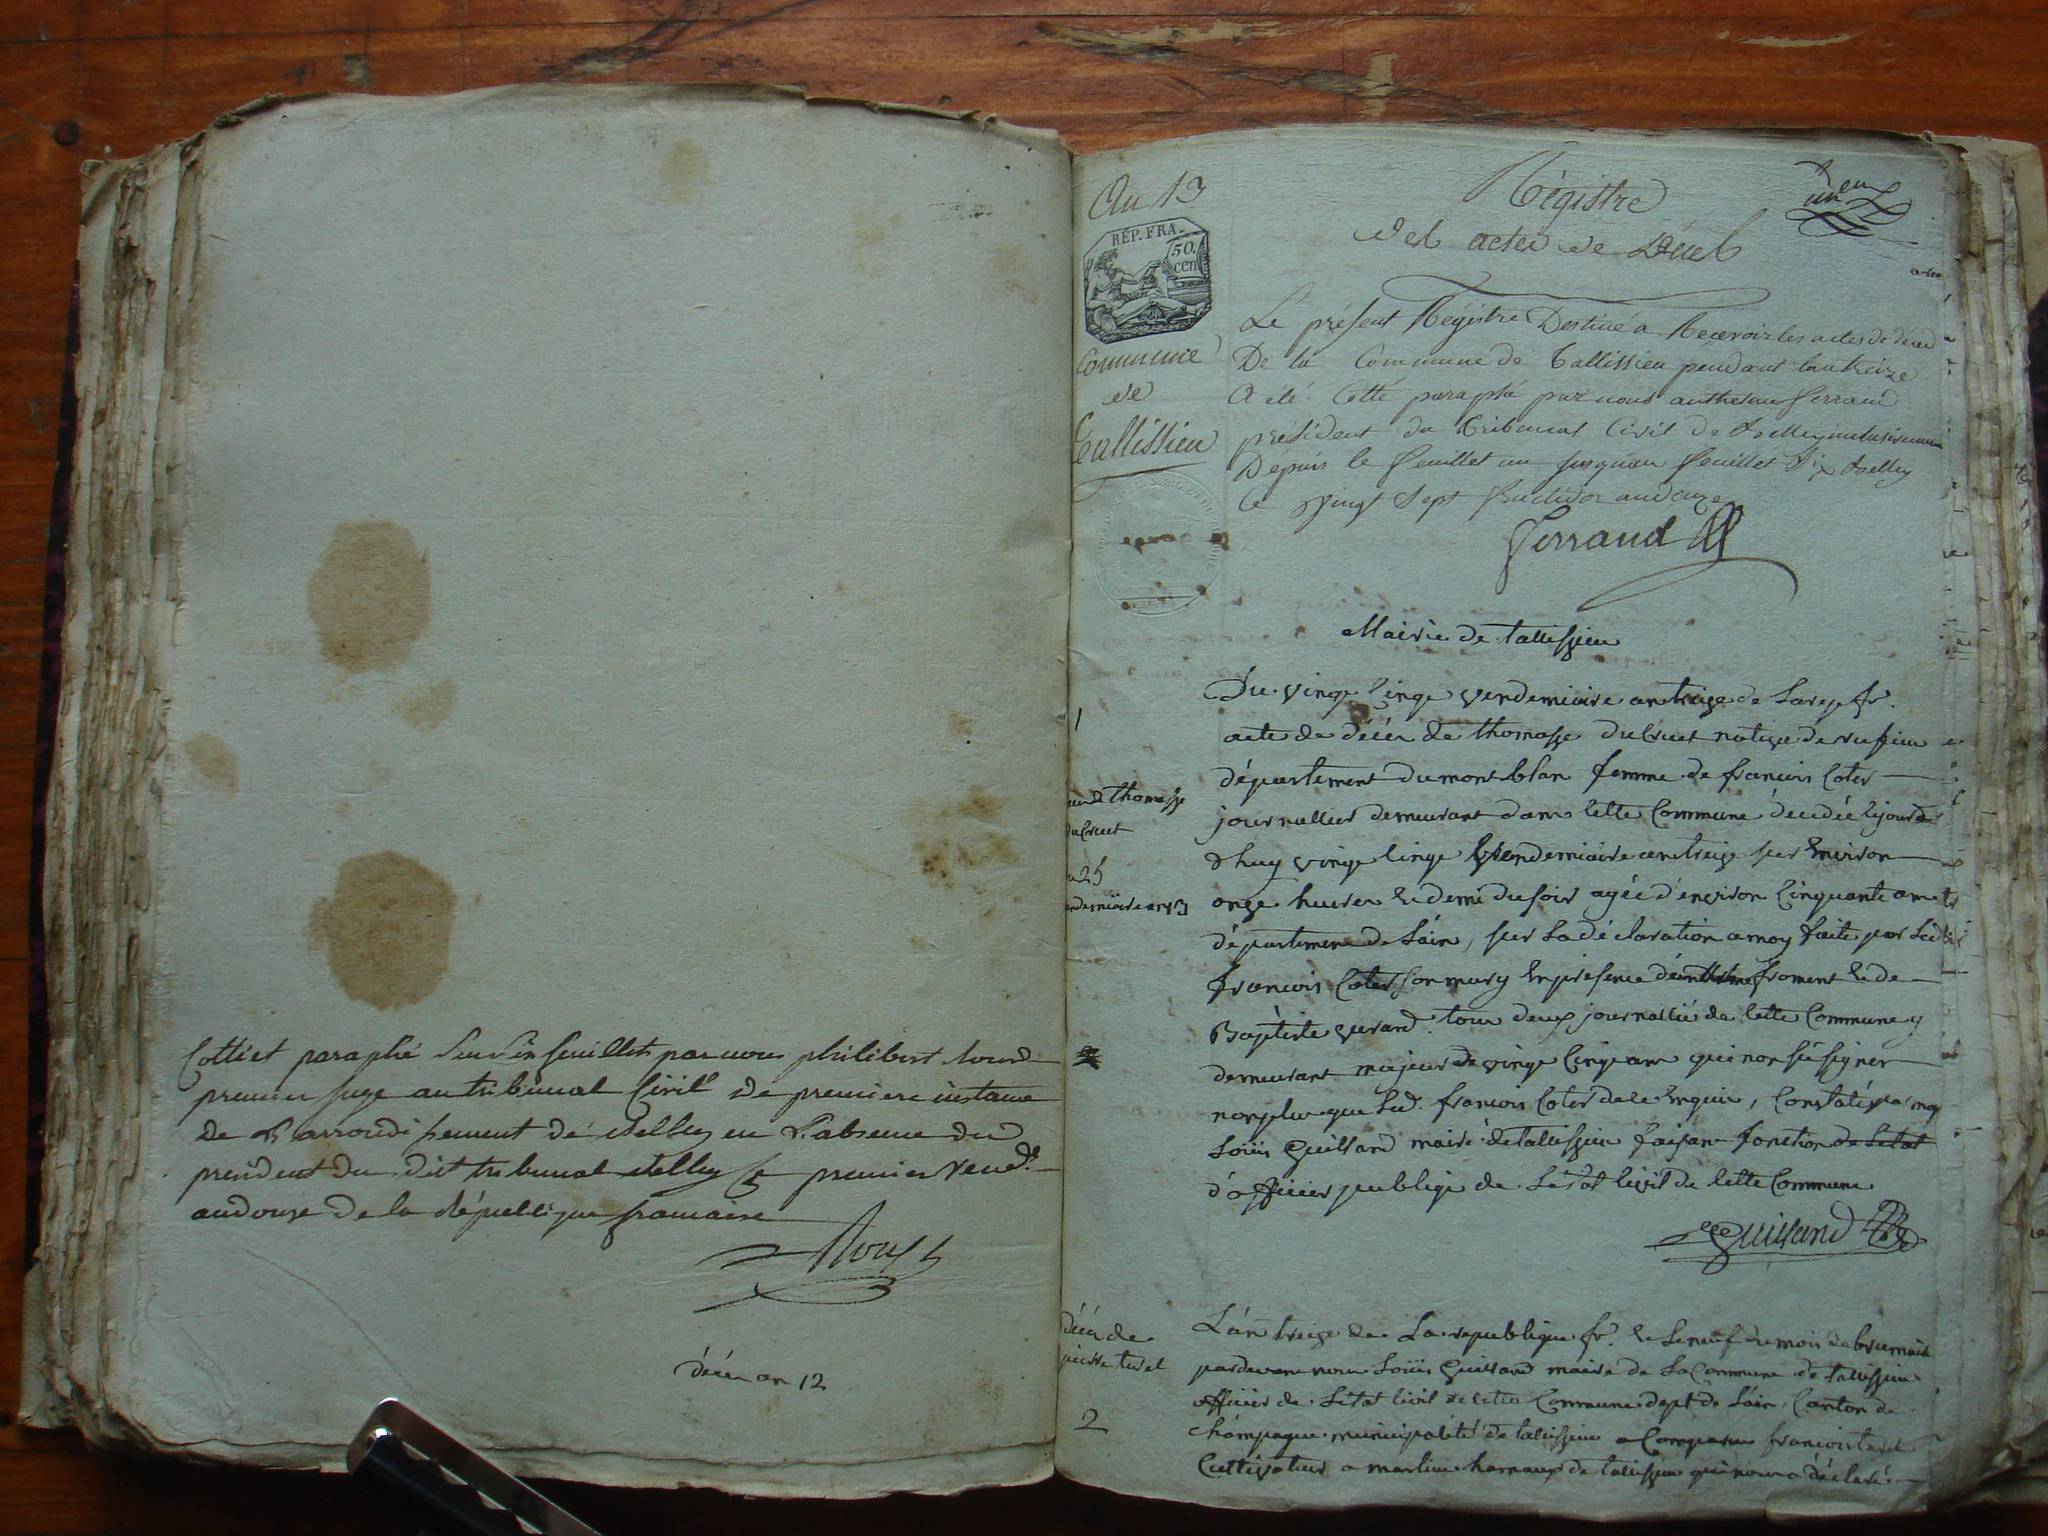 Cottié et paraphé Sur Six feuillets par nous philibert Roux
premier Juge au tribunal Civil de premiere instance
de L'arrondissement de Belley en L'absence du
president du dit tribunal Belley le premier Vendre
an douze de la République francaise
Roux
déces an 12
An 13
RÉP. FRA.
50.
cen
Commune
de
Tallissieu
Régistre
des actes de Décès
un
Le présent Régistre Destiné a Recevoir les actes de décès
De la Commune de Tallissieu pendant l'an treize
A été Cotté paraphé par nous anthelme Ferrand
président du Tribunal Civil de Belley
Dépuis le feuillet un Jusqu'au feuillet Six Belley
Ce Vingt Sept fructidor an Douze
Ferrand
Mairie de talissieu
1
Du vingt Cinqe vendemiaire an treize de La rep. fr.
acte de décés de thomasse Ducruet natise de ruffieu
département du mont blan femme de francois Coter
journallier demeurant dans Cette Commune décedée le jour d
dhuy vingt Cinqe Vendemiaire an treize sur Environ
onze heures Et demi du soir agée d'environ Cinquante ans
département de Lain, sur La déclaration a moy faite par Ledit
francois Coter son mary En presence froment Et de
Baptiste tous deux journallié de Cette Commune y
demeurant majeur de vingt Cinq ans qui non sû signer
non plus que Led. francois Coter de ce Enquis, Constaté par moy
Loüis Guilland maire de talissieu faisan fonction de Letat
d'officier publiqe de Letat Civil de Cette Commune
Guilland
thomasse
Ducruet
25
vendemiaire an 13
Lan treize de La republique fr. Et Le neuf du mois de brumaire
pardevant nous Loüis Guilland maire de La Commune de talissieu
officier de Letat Civil de Cette Commune dept de Lain Canton de
Champagne municipalité de talissieu a Comparu francois turel
Cultivateur a de talissieu qui nous a déclaré
décés de
pierre turel
2